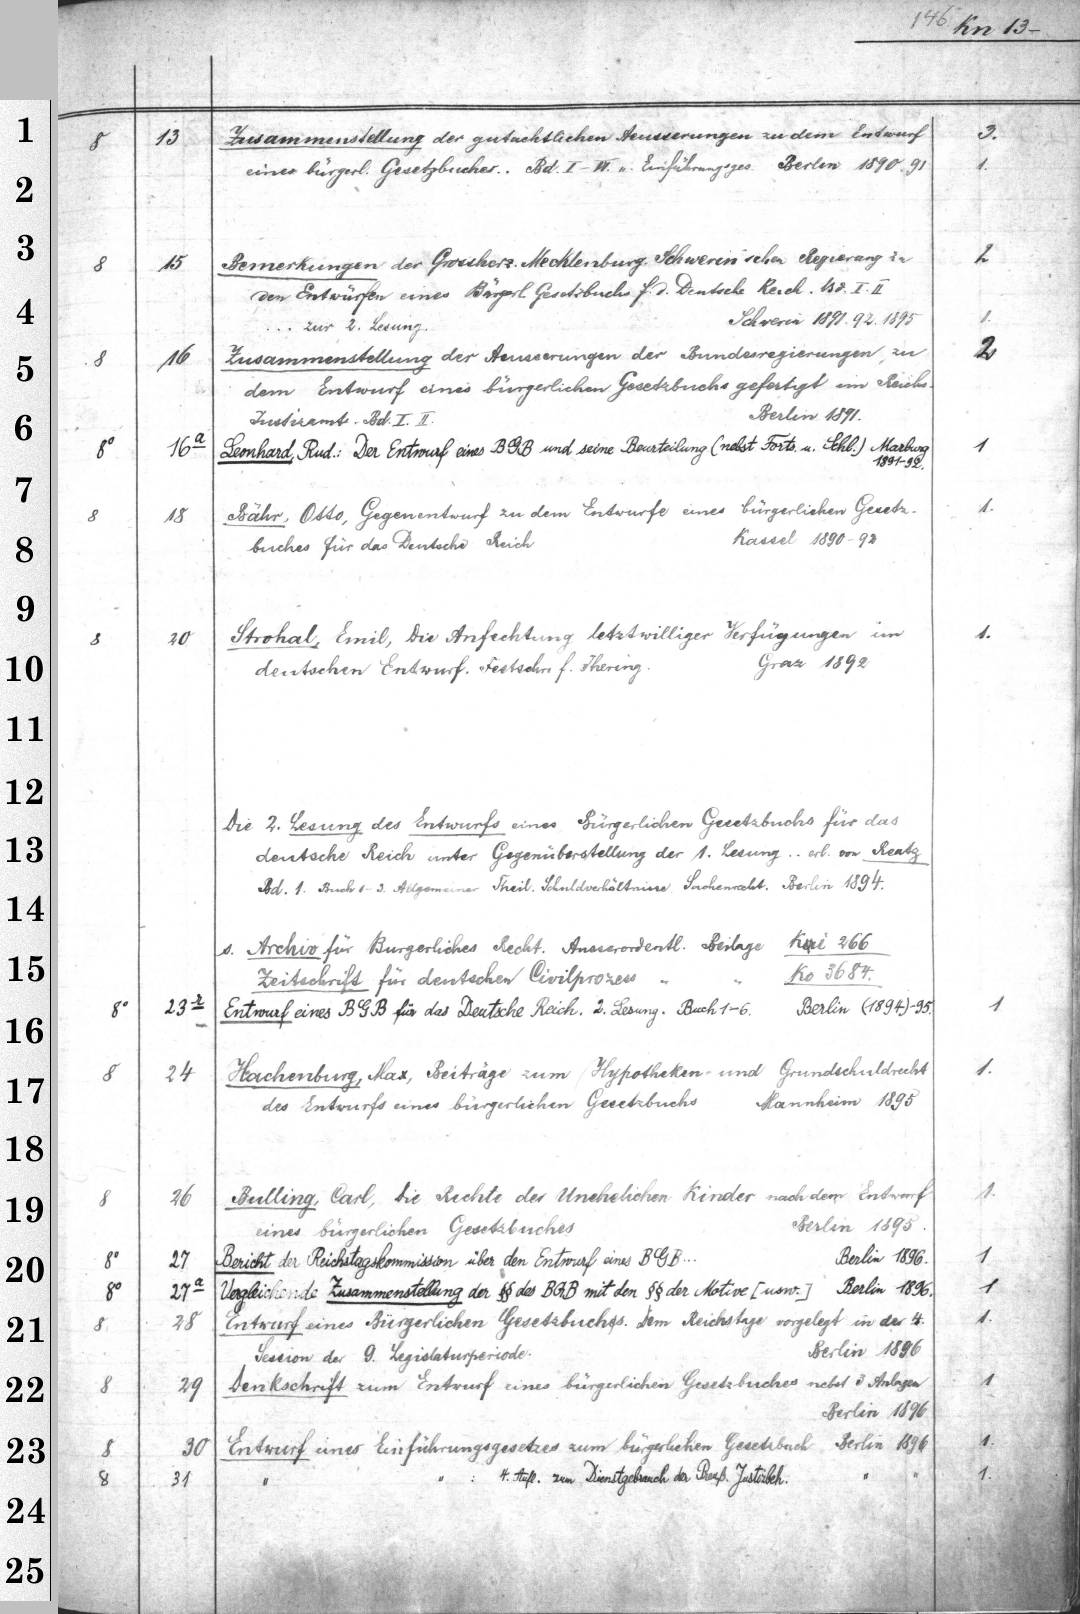 146 Kn 13-
1 8 13 Zusammenstellung der gutachtlichen Aeusserungen zu dem Entwurf 3.
eines bürgerl. Gesetzbuches.. Bd. I-VI. u. Einführungsges. Berlin 1890.91 1.
2
3 8 15 Bemerkungen der Grossherz. Mecklenburg. Schwerin'schen Regierung zu 2
den Entwürfen eines Bürgerl. Gesetzbuchs f. d. Deutsche Reich. Bd. I. II
4 ... zur 2. Lesung. Schwerin 1891.92.1895 1.
5 8 16 Zusammenstellung der Aeusserungen der Bundesregierungen zu 2
dem Entwurf eines bürgerlichen Gesetzbuchs gefertigt im Reichs-
6 Justizamt. Bd. I. II. Berlin 1891.
8° 16a Leonhard, Rud.: Der Entwurf eines BGB und seine Beurteilung (nebst Forts. u. Schl.) Marburg 1
1891-92.
7 8 18 Bähr, Otto, Gegenentwurf zu dem Entwurfe eines bürgerlichen Gesetz- 1.
8 buches für das Deutsche Reich Kassel 1890-92
9
8 20 Strohal, Emil, Die Anfechtung letztwilliger Verfügungen im 1.
10 deutschen Entwurf. Festschr. f. Ihering. Graz 1892
11
12
Die 2. Lesung des Entwurfs eines Bürgerlichen Gesetzbuchs für das
13 deutsche Reich unter Gegenüberstellung der 1. Lesung .. erl. von Reatz
Bd. 1. Buch 1-3. Allgemeiner Theil. Schuldverhältnisse. Sachenrecht. Berlin 1894.
14
s. Archiv für Bürgerliches Recht. Ausserordentl. Beilage 266
15 Zeitschrift für deutschen Civilprozess " " Ko 3684.
8° 23 Entwurf eines BGB für das Deutsche Reich. 2. Lesung. Buch 1-6. Berlin (1894)-95. 1
16
8 24 Hachenburg, Max, Beiträge zum Hypotheken- und Grundschuldrecht 1.
17 des Entwurfs eines bürgerlichen Gesetzbuchs Mannheim 1895
18
19 8 26 Bulling, Carl, Die Rechte der Unehelichen Kinder nach dem Entwurf 1.
eines bürgerlichen Gesetzbuches Berlin 1895.
20 8° 27 Bericht der Reichstagskommission über den Entwurf eines BGB... Berlin 1896. 1
8° 27a Vergleichende Zusammenstellung der §§ des BGB mit den §§ der Motive [usw.] Berlin 1896. 1
21 8 28 Entwurf eines Bürgerlichen Gesetzbuchs. Dem Reichstage vorgelegt in der 4. 1.
Session der 9. Legislaturperiode. Berlin 1896
22 8 29 Denkschrift zum Entwurf eines bürgerlichen Gesetzbuches nebst 3 Anlagen 1
Berlin 1896
23 8 30 Entwurf eines Einführungsgesetzes zum bürgerlichen Gesetzbuch Berlin 1896 1.
8 31 " " : 4. Aufl. zum Dienstgebrauch der Preuß. Justizbeh. " " 1.
24
25